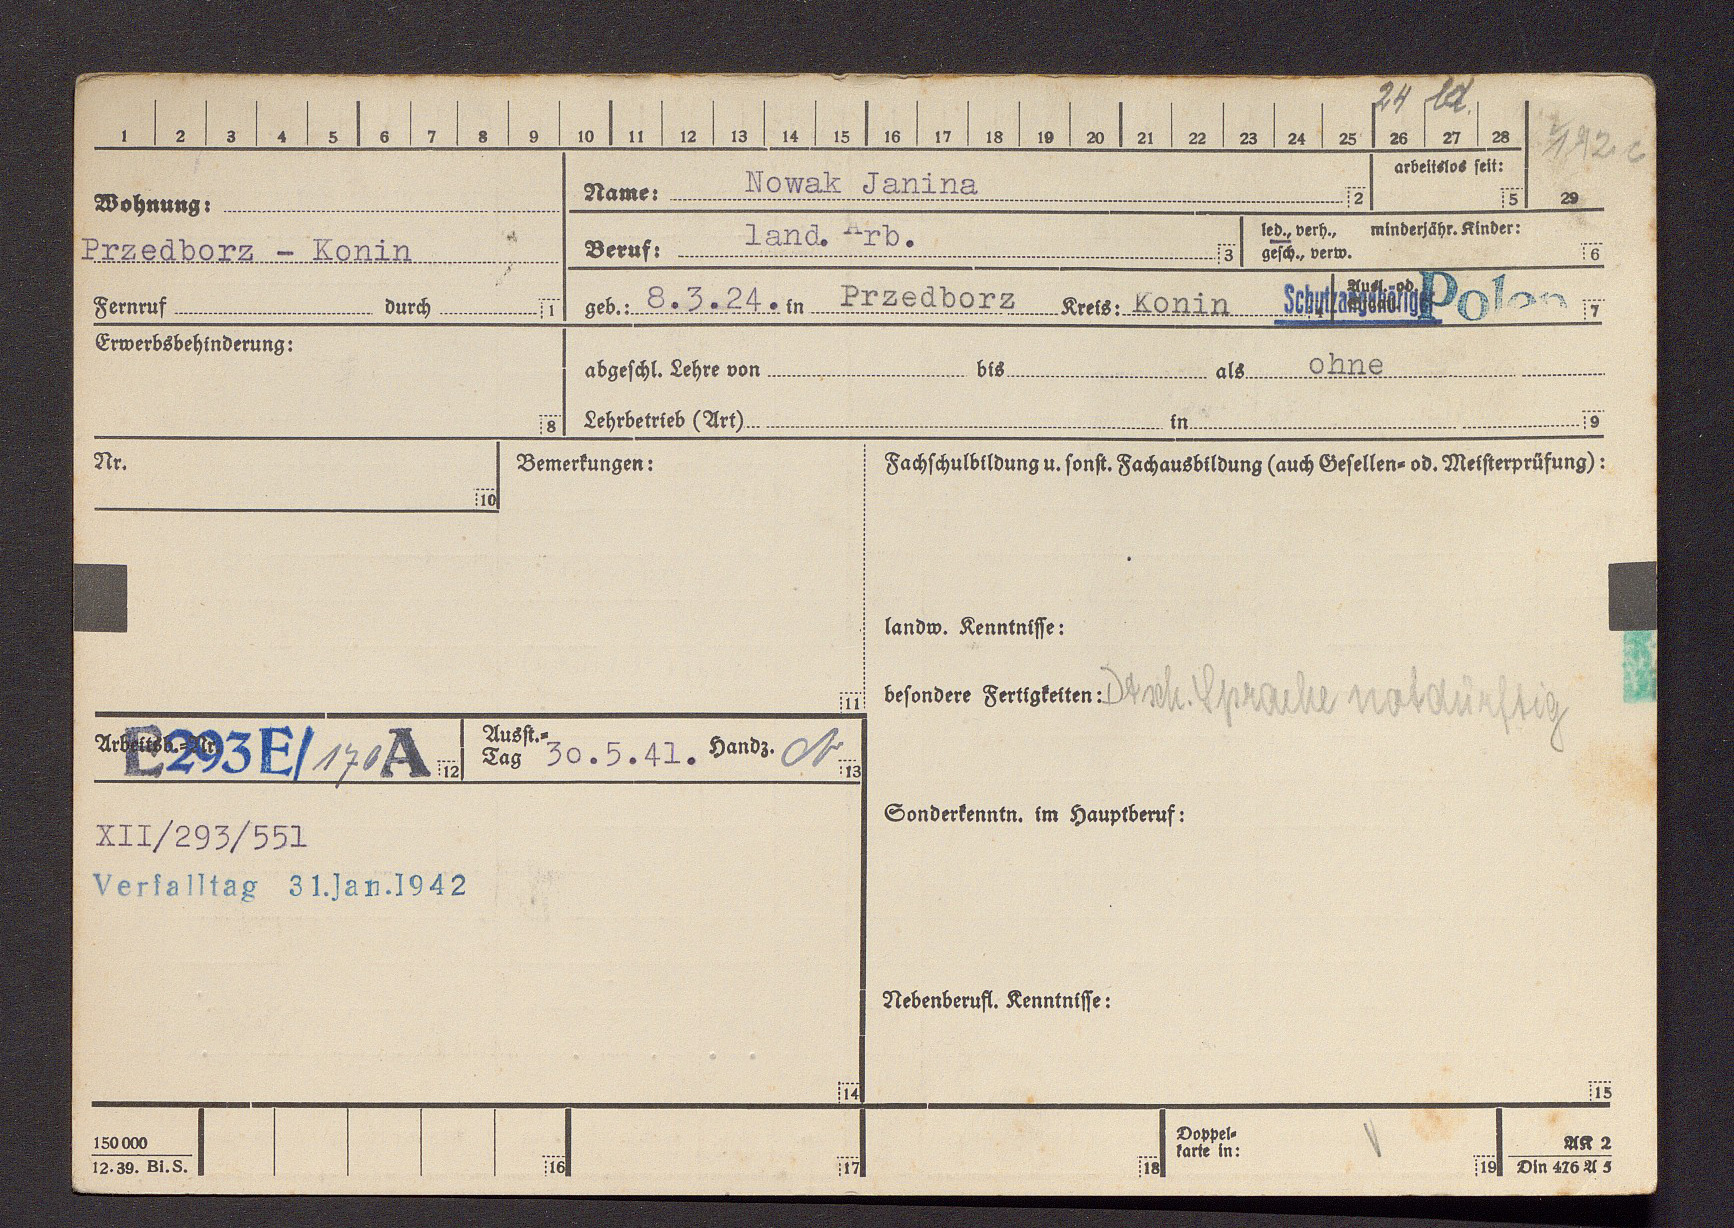 24 led.
1 2 3 4 5 6 7 8 9 10 11 12 13 14 15 16 17 18 19 20 21 22 23 24 25 26 27 28
Wohnung:
Przedborz - Konin
Name: Nowak Janina 2
arbeitslos seit: 5
29
Beruf: land. Arb. 3
led., verh., minderjähr. Kinder:
gesch., verw. 6
Fernruf durch 1
geb.: 8.3.24. in Przedborz Kreis: Konin 4
Ausl. od.
Schutzangehörige Polen 7
Erwerbsbehinderung:
8
abgeschl. Lehre von bis als ohne
Lehrbetrieb (Art) in 9
Nr.
10
Bemerkungen:
11
Fachschulbildung u. sonst. Fachausbildung (auch Gesellen- od. Meisterprüfung):
landw. Kenntnisse:
besondere Fertigkeiten: Dtsch. Sprache notdürftig
Arbeitsb.-Nr. E293E/170A 12
Ausst.-
Tag 30.5.41. Handz. 13
XII/293/551
Verfalltag 31.Jan.1942
14
Sonderkenntn. im Hauptberuf:
Nebenberufl. Kenntnisse:
15
150 000
12.39. Bi.S.
16
17
18
Doppel-
karte in:
19
AK 2
Din 476 A 5